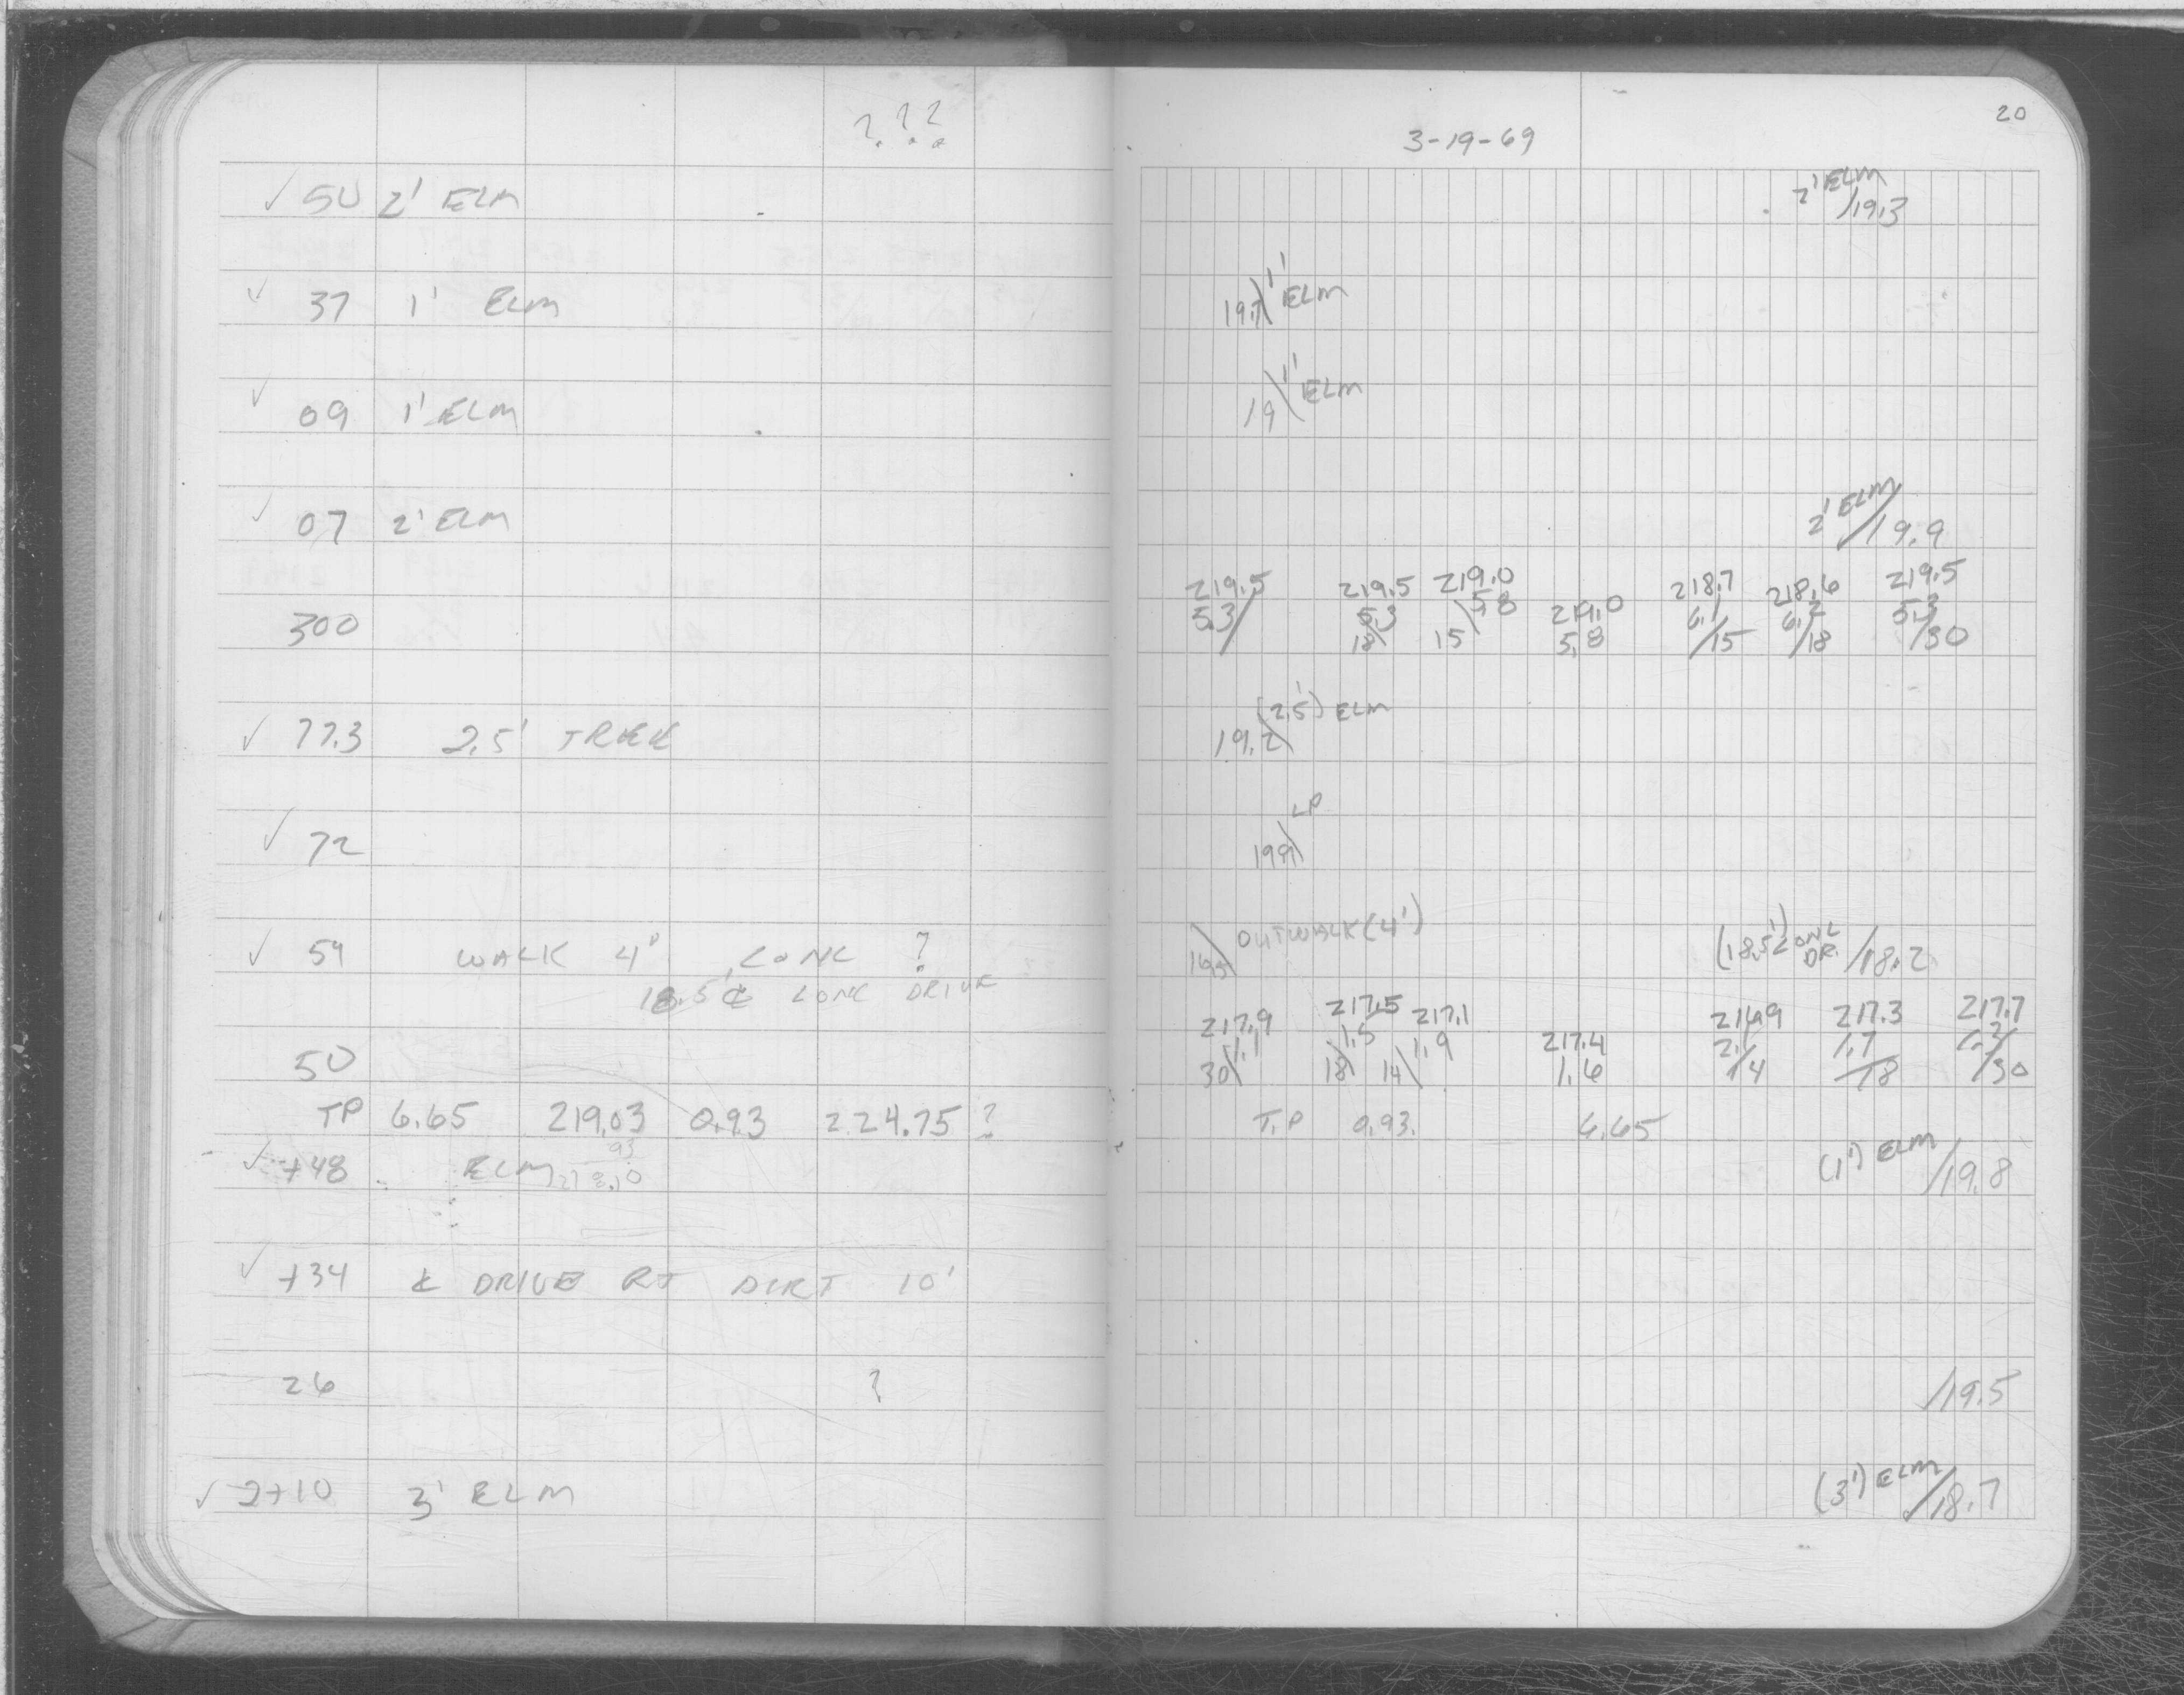 ? ? ?
✓ 50 2' ELM
✓ 37 1' ELM
✓ 09 1' ELM
✓ 07 2' ELM
300
✓ 77.3 2.5' TREE
✓ 72
✓ 59 WALK 4' CONC ?
18.5' ℄ CONC DRIVE
50
TP 6.65 219.03 0.93 224.75 ?
✓ +48 ELM
93
218.10
✓ +34 ℄ DRIVE RT DIRT 10'
26 ?
✓ 2+10 3' ELM
20
3-19-69
2' ELM
/19.3
1' ELM
19.7\
1' ELM
19\
2' ELM
/19.9
219.5 219.5 219.0 219.0 218.7 218.6 219.5
5.3/ 5.3 5.8 5.8 6.1 6.2 5.3
18\ 15\ /15 /18 /30
(2.5') ELM
19.2\
LP
19.9\
\ OUTWALK (4') (18.5') CONC DR. /18.2
217.9 217.5 217.1 217.4 216.9 217.3 217.7
1.1 1.5 1.9 1.6 2.1 1.7 1.3
30\ 18\ 14\ /14 /18 /30
T.P 0.93 6.65
(1') ELM
/19.8
/19.5
(3') ELM
/18.7